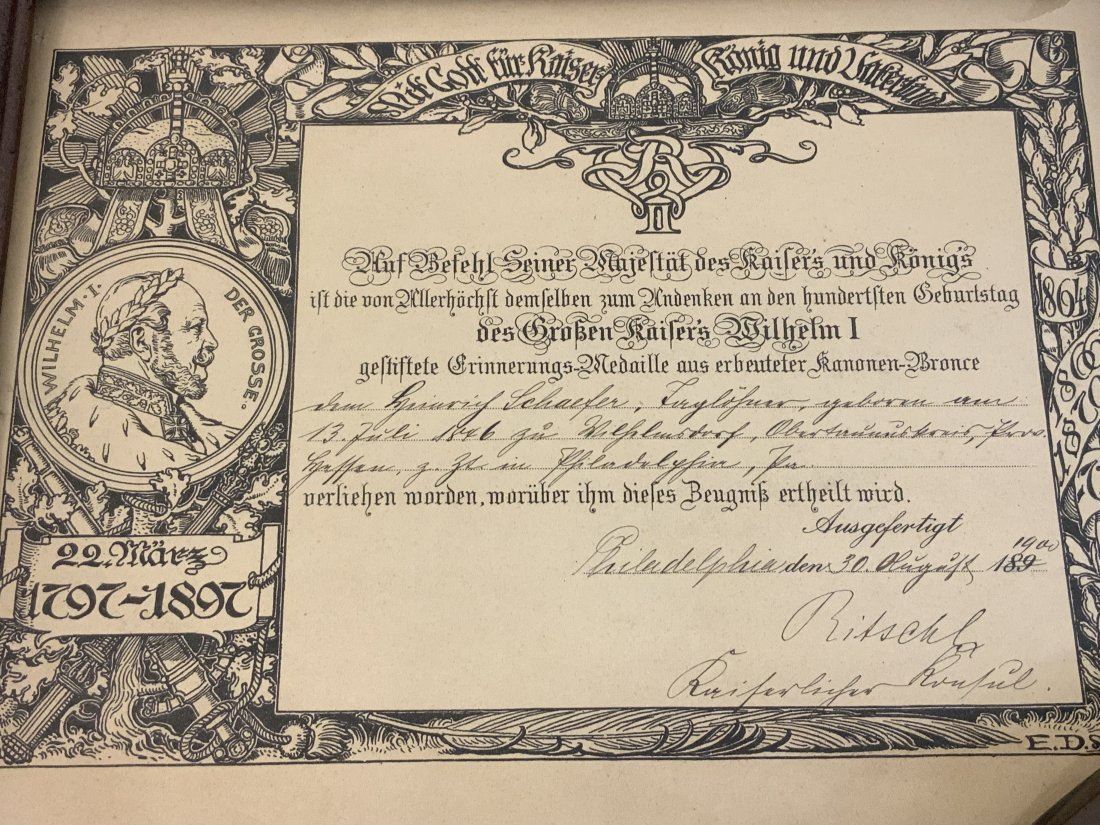 Mit Gott für Kaiser König und Vaterland
WR
II
Auf Befehl Seiner Majestät des Kaiser's und König's
ist die von Allerhöchst demselben zum Andenken an den hundertsten Geburtstag
des Großen Kaiser's Wilhelm I
gestiftete Erinnerungs-Medaille aus erbeuteter Kanonen-Bronce
dem Heinrich Schaefer, Taglöhner, geboren am
13. Juli 1846 zu Wilhelmsdorf, Obertaunuskreis, Prov.
Hessen, z. Zt. in Philadelphia, Pa.
verliehen worden, worüber ihm dieses Zeugniß ertheilt wird.
Ausgefertigt
Philadelphia den 30. August 1900
189
Ritschl
Kaiserlicher Konsul.
WILHELM · I. DER GROSSE.
22. März
1797-1897
1864
E.D.